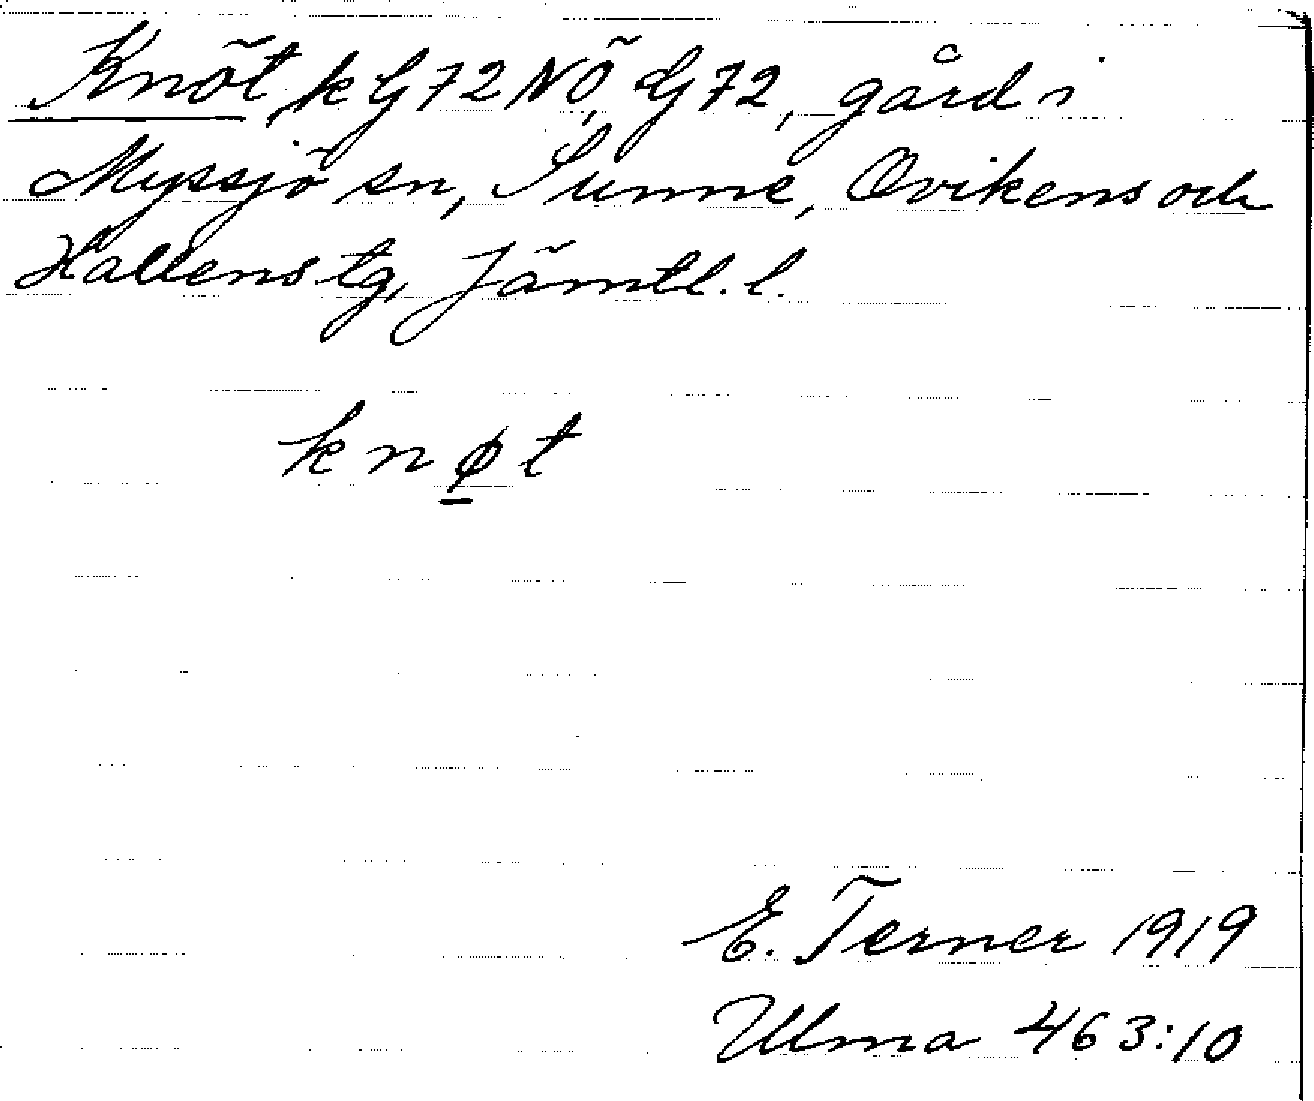 Knöt, k G 72 NÖ, G 72, gård i
Myssjö sn, Sunne, Ovikens och
Hallens tg, Jämtl. l.
knø̲t
E. Terner 1919
Ulma 463:10